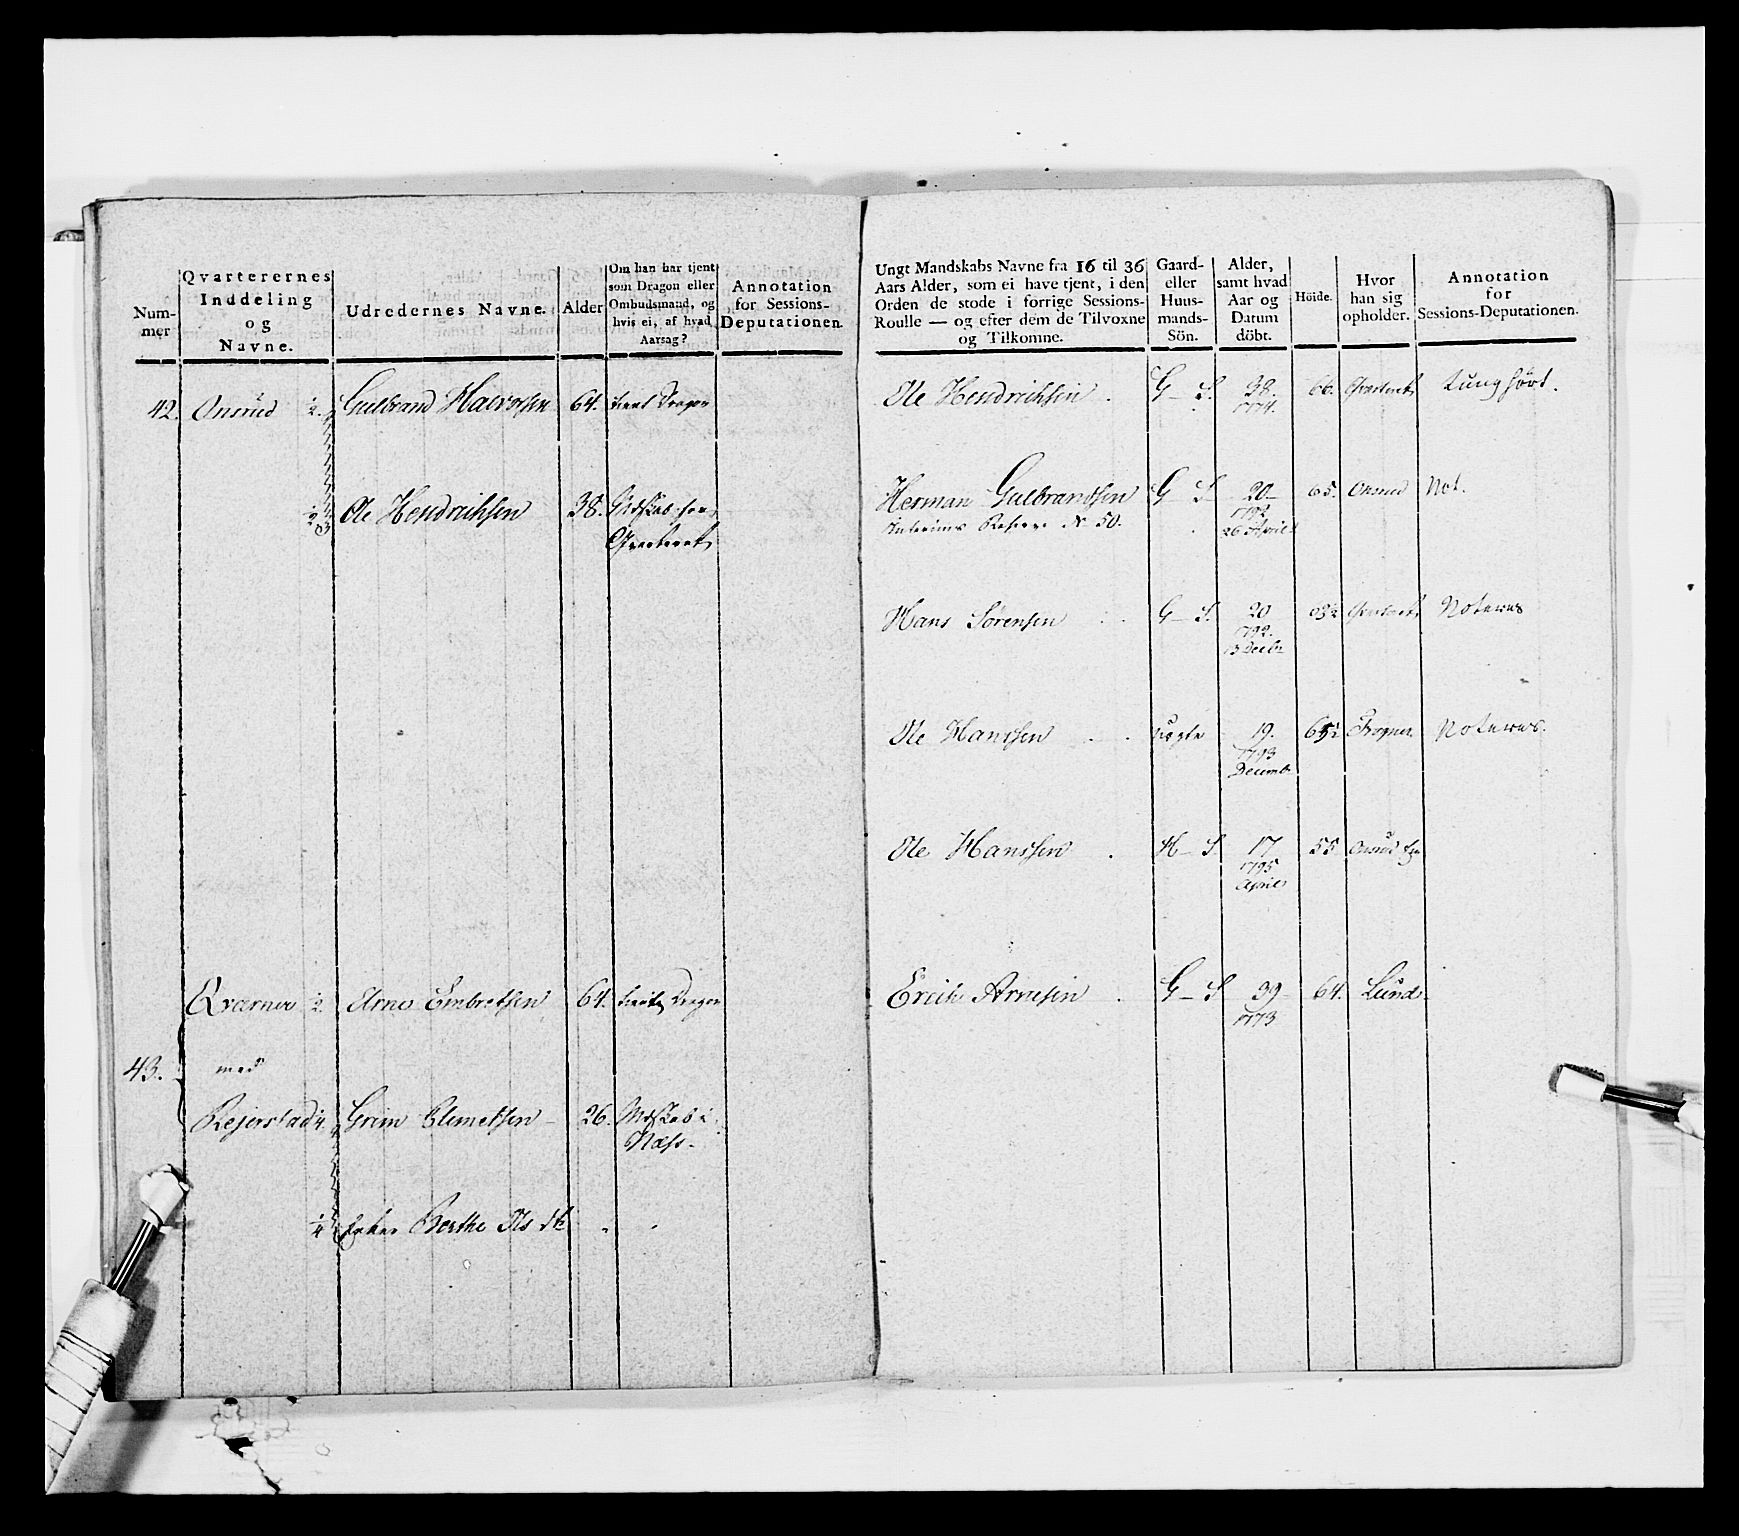 Num-
mer
Qvarterernes
Inddeling
og
Navne.
Udredernes Navne.
Alder
Om han har tjent
som Dragon eller
Ombudsmand, og
hvis ei, af hvad
Aarsag?
Annotation
for Sessions-
Deputationen.
42. Onsrud ½ Gulbrand Halvorsen 64. tient Dragon
Ole Hendrichsen 38. Mdskab for
Qvarteret
Qværner ½ Arne Embretsen 64. tient Dragon
43. med
Rejerstad ¼ Grim Clemetsen 26. Mdskab i
Næss
¼ Enken Berthe Ols d
Ungt Mandskabs Navne fra 16 til 36
Aars Alder, som ei have tjent, i den
Orden de stode i forrige Sessions-
Roulle — og efter dem de Tilvoxne
og Tilkomne.
Gaard-
eller
Huus-
mands-
Sön.
Alder,
samt hvad
Aar og
Datum
döbt.
Höide.
Hvor
han sig
opholder.
Annotation
for
Sessions-Deputationen.
Ole Hendrichsen G - S. 38. 66. Qvarteret tunghört.
1774.
Herman Gulbrandsen G S 20 65. Onsrud Not.
Interims Reserve No 50. 1792
26 April
Hans Sørensen G - S. 20 63½ Qvarteret Noteres
1792.
13 Decbr
Ole Hanssen uægte 19. 65½ Frogner Noteres.
1793
Decemb
Ole Hanssen H - S. 17 55 Onsrud
1795
April
Erich Arnesen G - S 39 64. Lund
1773